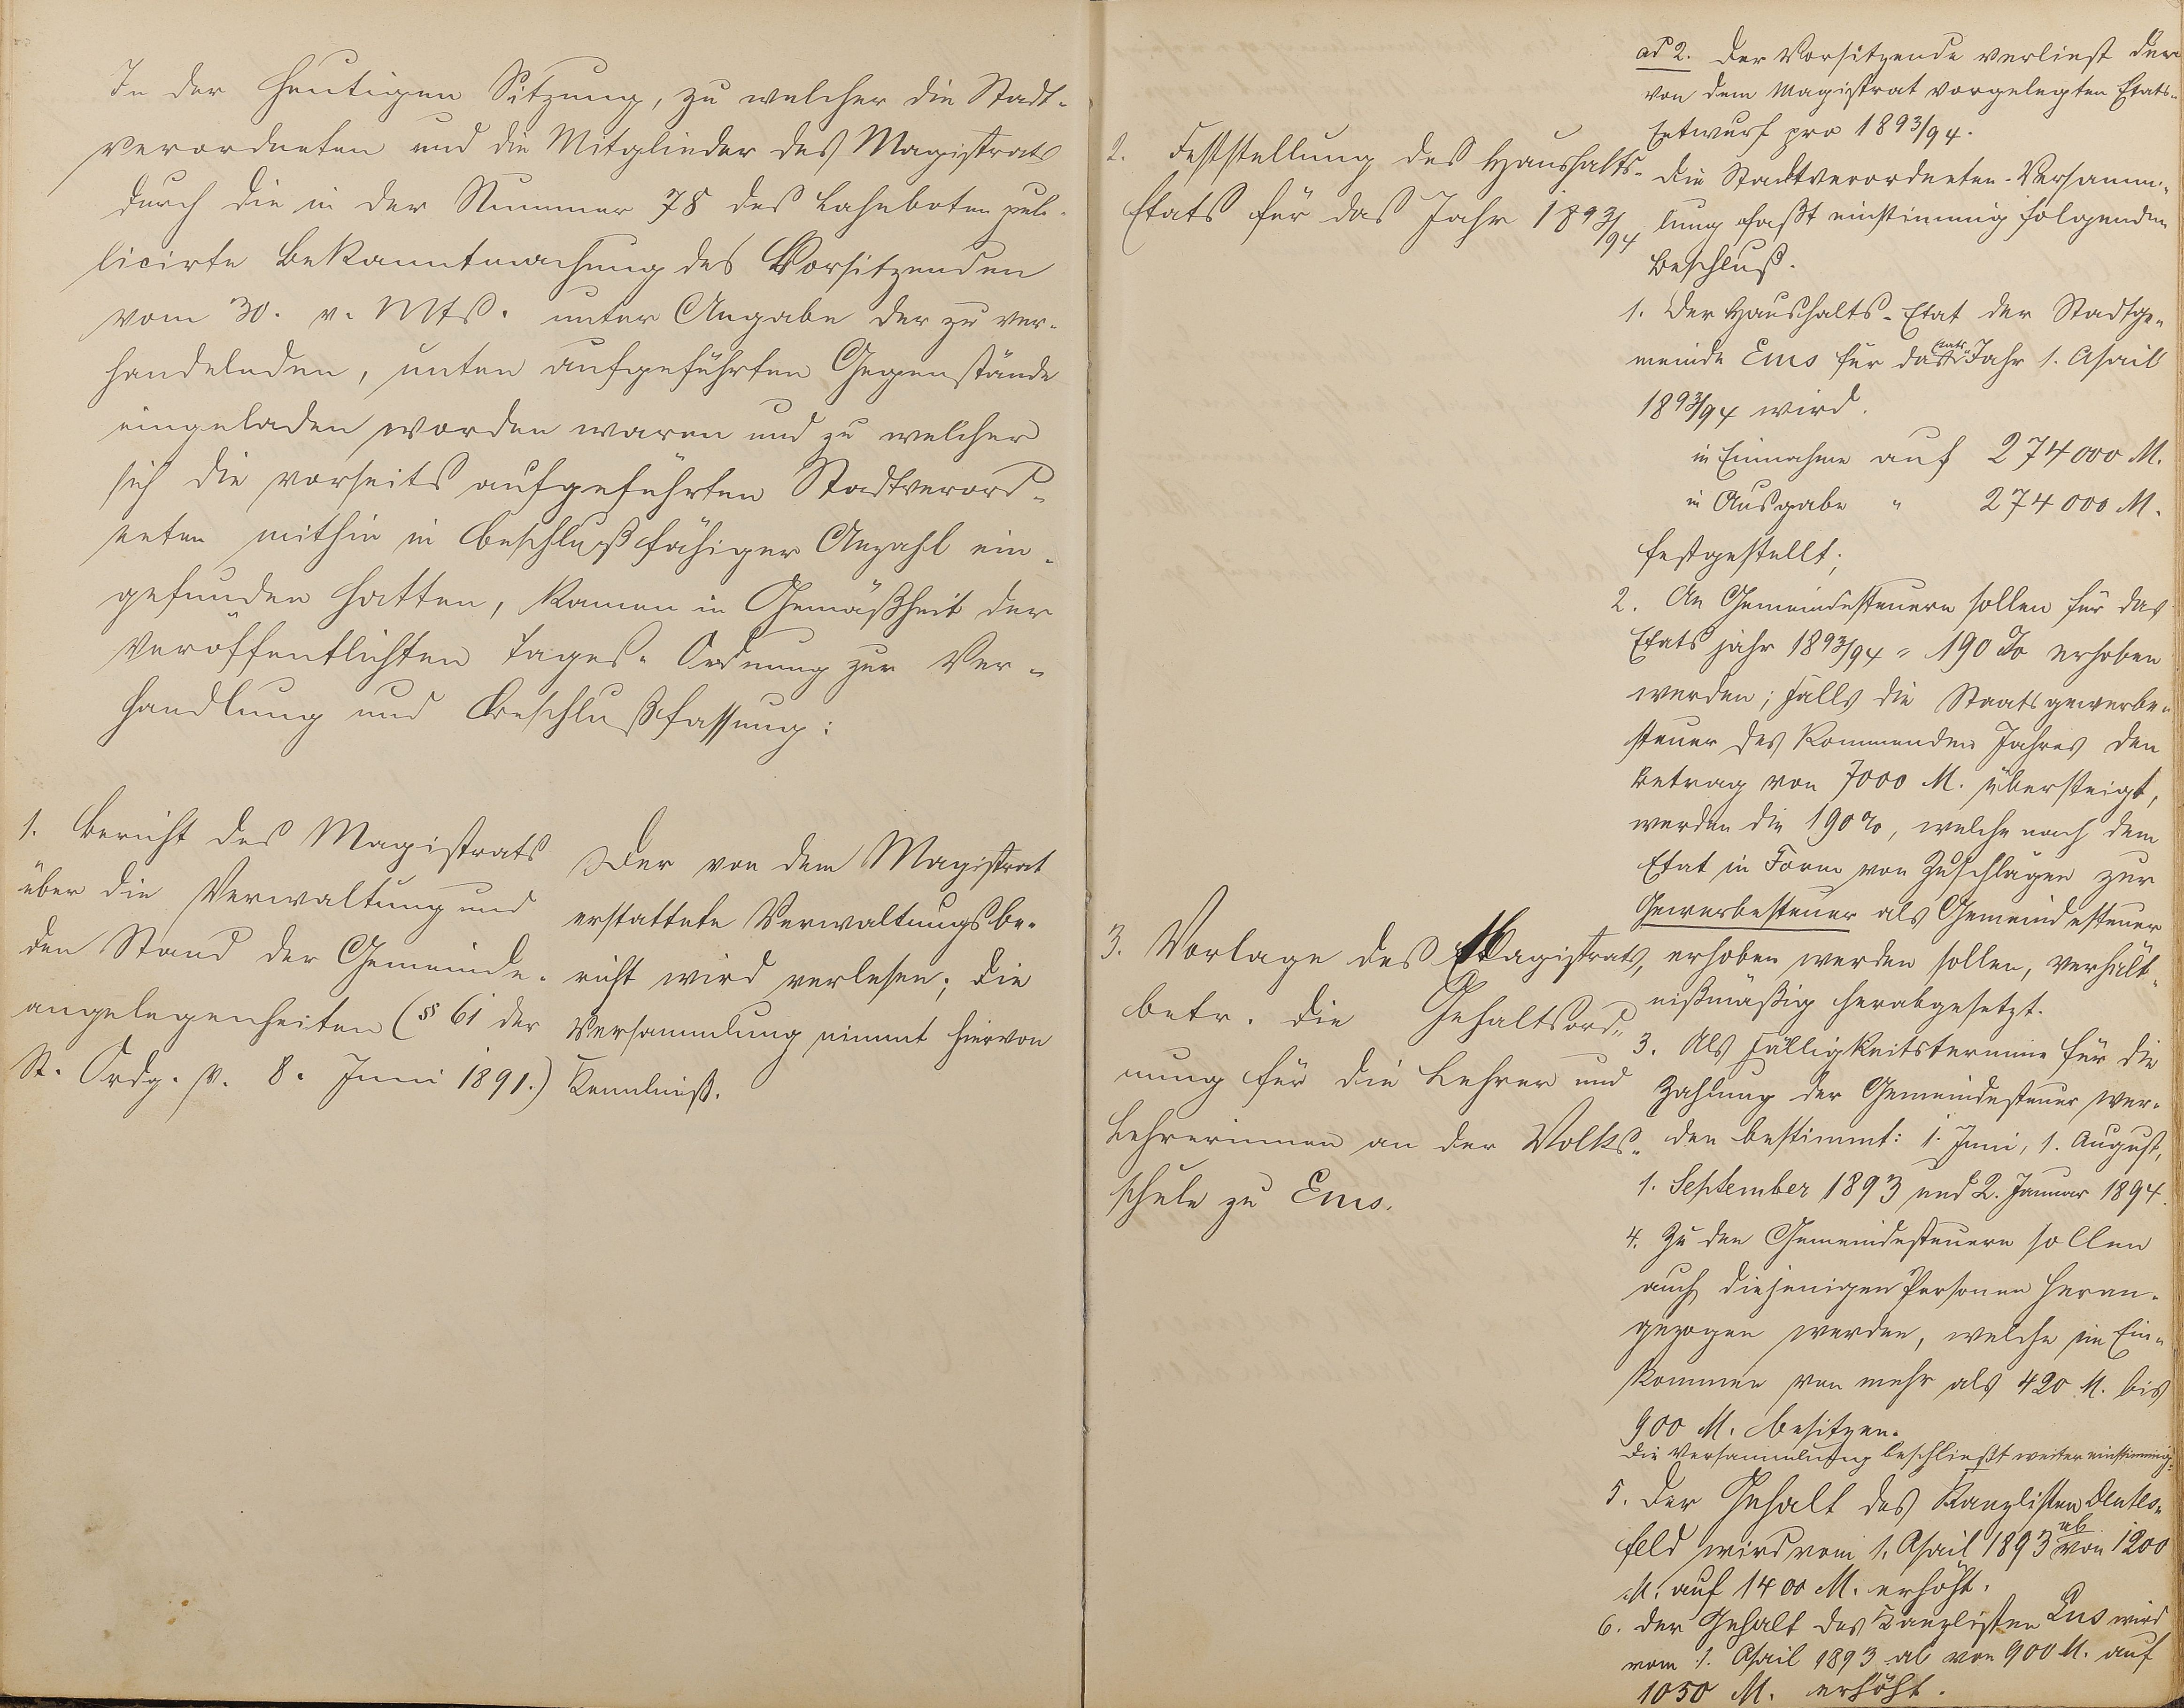 In der heutigen Sitzung, zu welcher die Stadt-
verordneten und die Mitglieder des Magistrats
durch die in der Nummer 78 des Lahnboten pub-
licirte Bekanntmachung des Vorsitzenden
vom 30. v. Mts. unter Angabe der zu ver-
handelnden, unten aufgeführten Gegenstände
eingeladen worden waren und zu welcher
sich die vorseits aufgeführten Stadtverord-
neten mithin in beschlußfähiger Anzahl ein-
gefunden hatten, kamen in Gemäßheit der
veröffentlichten Tages-Ordnung zur Ver-
handlung und Beschlußfassung:
1. Bericht des Magistrats
über die Verwaltung und
den Stand der Gemeinde-
angelegenheiten (§ 61 der
St. Ordg. v. 8. Juni 1891.)
Der von dem Magistrat
erstattete Verwaltungsbe-
richt wird verlesen; die
Versammlung nimmt hiervon
Kenntniß.
2. Feststellung des Haushalts-
Etats für das Jahr 1893/94
ad 2. Der Vorsitzende verliest den
von dem Magistrat vorgelegten Etats-
Entwurf pro 1893/94.
Die Stadtverordneten-Versamm-
lung faßt einstimmig folgenden
Beschluß.
1. Der Haushalts-Etat der Stadtge-
meinde Ems für das Etats-Jahr 1. April
1893/94 wird.
in Einnahme auf 274000 M.
in Ausgabe " 274000 M.
festgestellt;
2. An Gemeindesteuern sollen für das
Etatsjahr 1893/94 = 190 % erhoben
werden; falls die Staatsgewerbe-
steuer des kommenden Jahres den
Betrag von 7000 M. übersteigt,
werden die 190%, welche nach dem
Etat in Form von Zuschlägen zur
Gewerbesteuer als Gemeindesteuer
erhoben werden sollen, verhält-
nißmäßig herabgesetzt.
3. Als Fälligkeitstermine für die
Zahlung der Gemeindesteuer wer-
den bestimmt: 1. Juni, 1. August,
1. September 1893 und 2. Januar 1894.
4. Zu den Gemeindesteuern sollen
auch diejenigen Personen heran-
gezogen werden, welche ein Ein-
kommen von mehr als 420 M. bis
900 M. besitzen.
Die Versammlung beschließt weiter einstimmig:
5. Der Gehalt des Kanzlisten
feld wird vom 1. April 1893 ab von 1200
M. auf 1400 M. erhöht.
6. Der Gehalt des Kanzlisten wird
vom 1. April 1893 ab von 900 M. auf
1050 M. erhöht.
3. Vorlage des Magistrats,
betr. die Gehaltsord-
nung für die Lehrer und
Lehrerinnen an der Volks-
schule zu Ems.